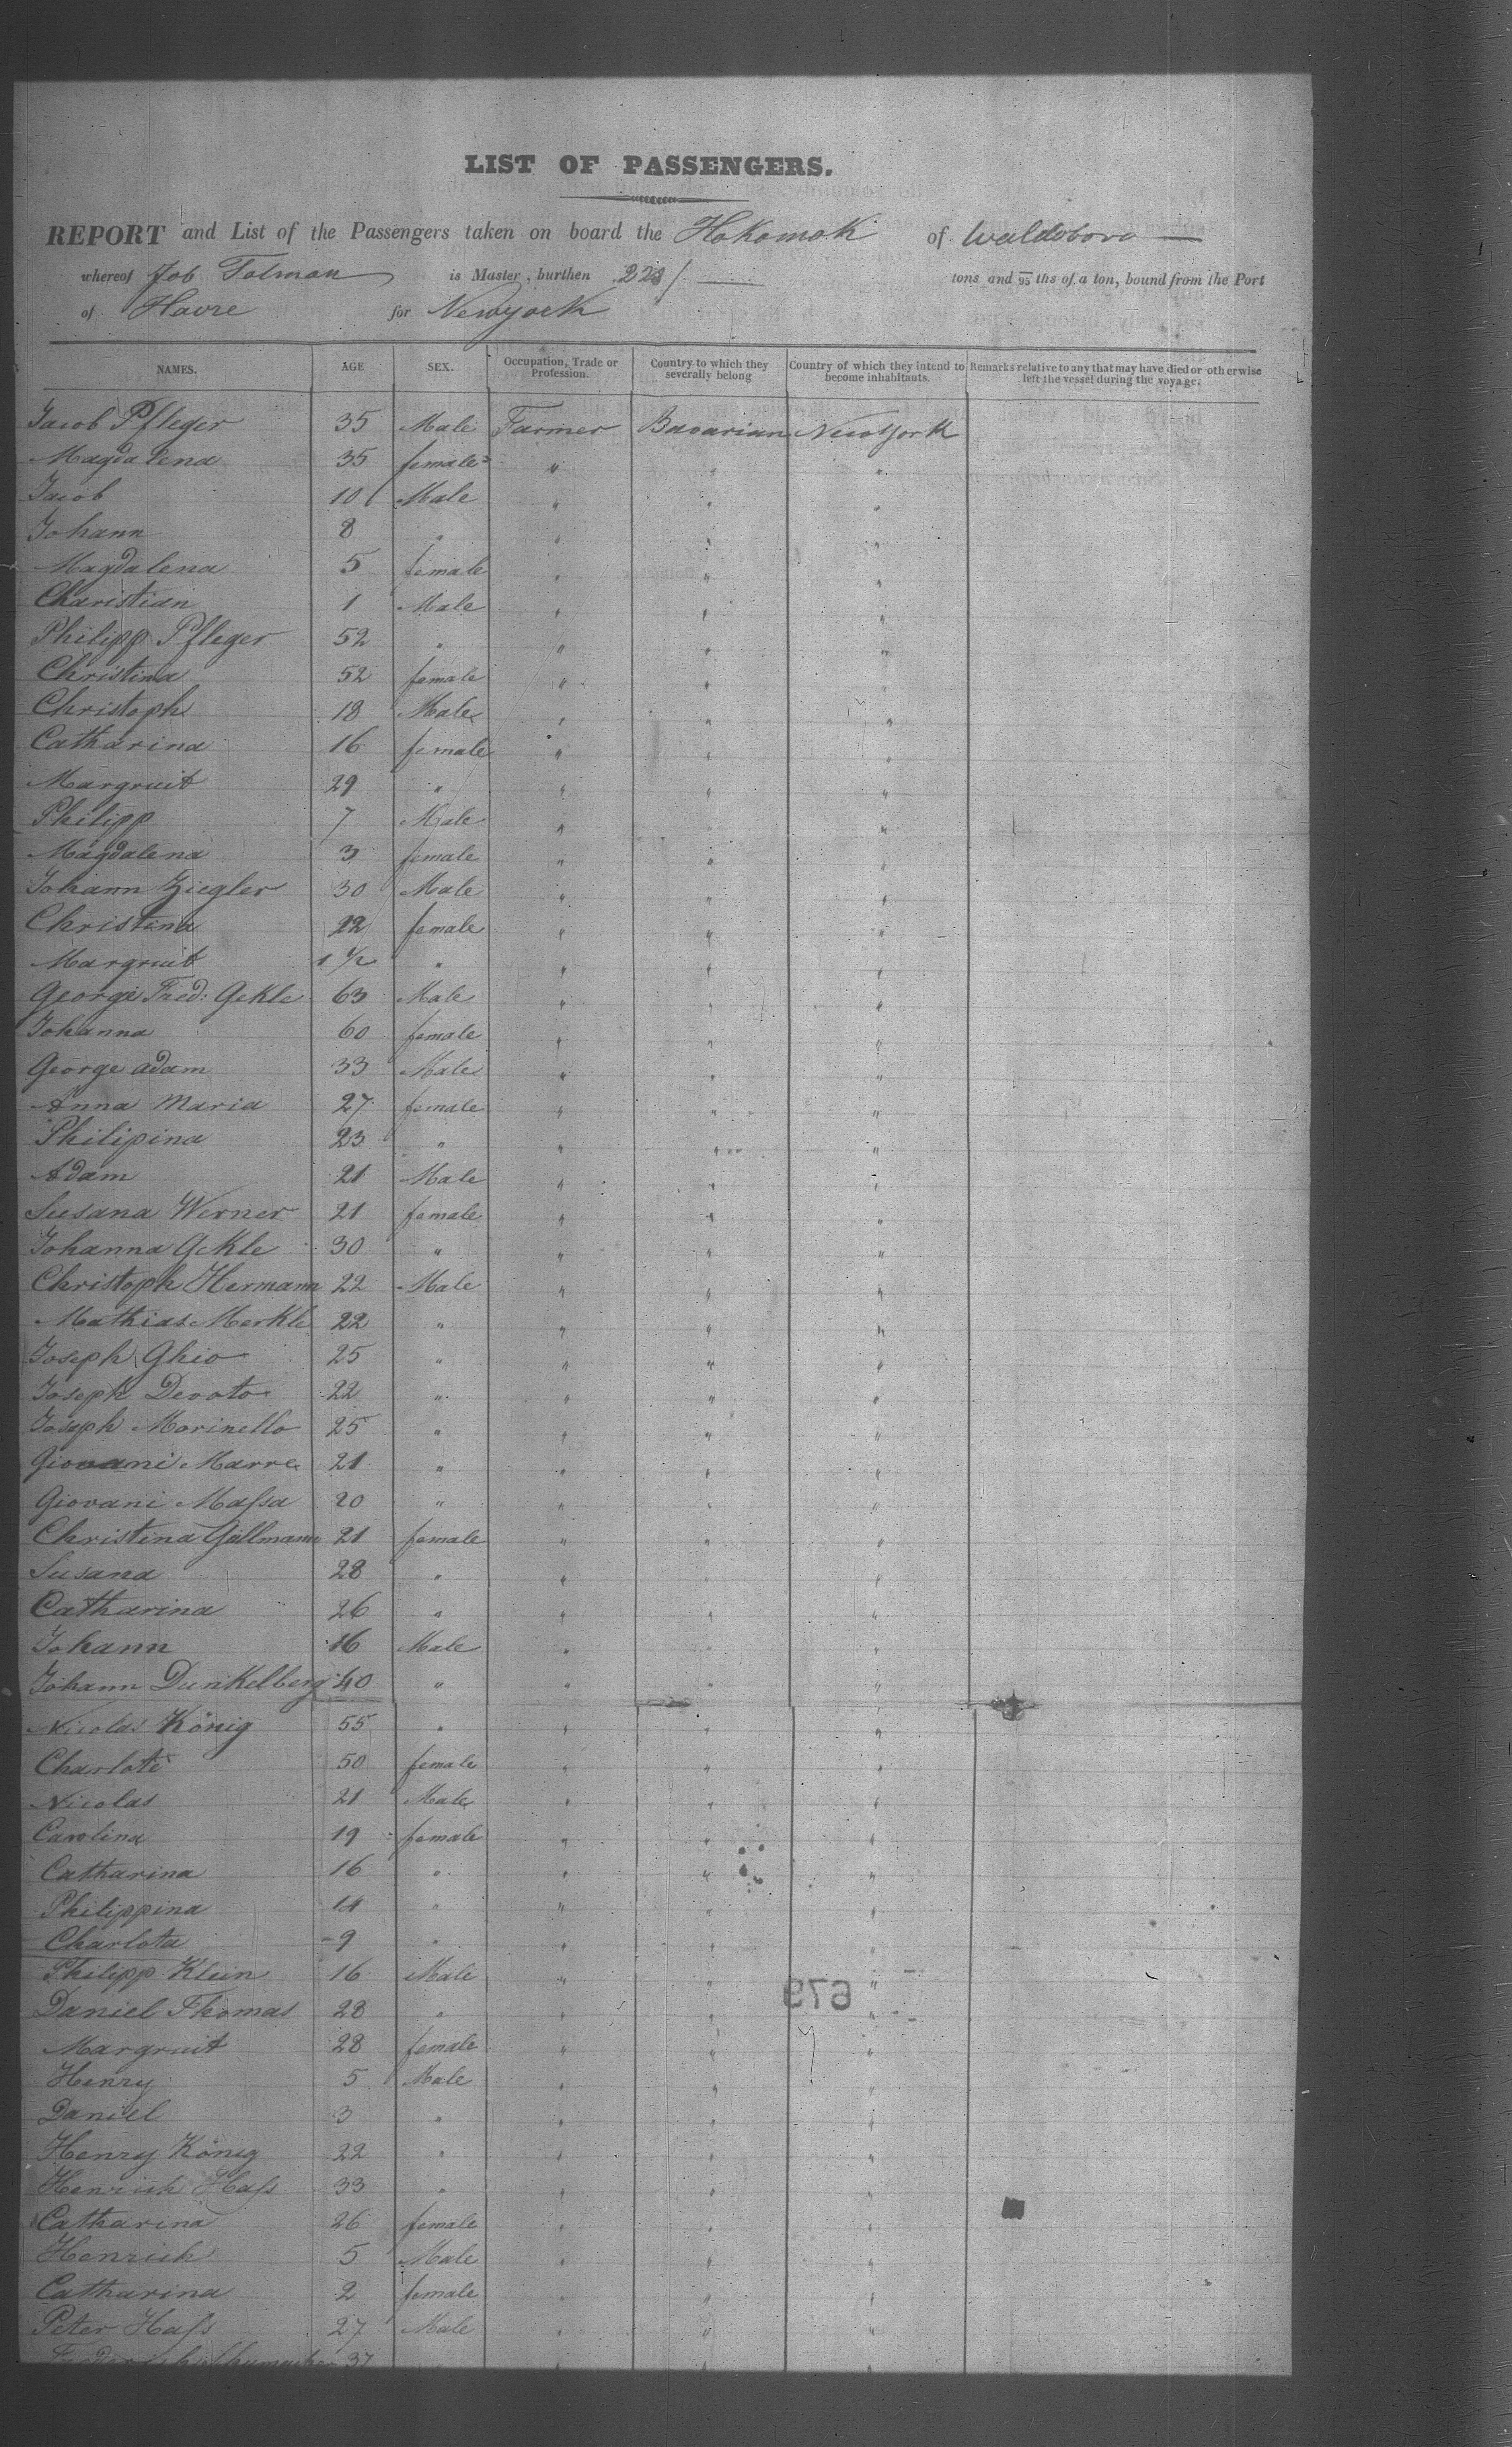 LIST OF PASSENGERS.
REPORT and List of the Passengers taken on board the Hokomok of Waldoboro
whereof Job Tolman is Master, burthen 223/ tons and /95 ths of a ton, bound from the Port
of Havre for Newyork
NAMES. AGE SEX. Occupation, Trade or Profession. Country to which they severally belong Country of which they intend to become inhabitants. Remarks relative to any that may have died or otherwise left the vessel during the voyage.
Jacob Pfleger 35 Male Farmer Bavarian New York
Magdalena 35 female " " "
Jacob 10 Male " " "
Johann 8 " " " "
Magdalena 5 female " " "
Charistian 1 Male " " "
Philipp Pfleger 52 " " " "
Christina 52 female " " "
Christoph 18 Male " " "
Catharina 16 female " " "
Margruit 29 " " " "
Philipp 7 Male " "
Magdalena 3 female " " "
Johann Ziegler 30 Male " " "
Christina 22 female " " "
Margruit 1 1/2 " " " "
George Fred: Gekle 63 Male " " "
Johanna 60 female " " "
George adam 33 Male " " "
Anna Maria 27 female " " "
Philipina 23 " " " "
Adam 21 Male " " "
Susana Werner 21 female " " "
Johanna Gekle 30 " " " "
Christoph Hermann 22 Male " " "
Mathias Merkle 22 " " " "
Joseph Ghio 25 " " " "
Joseph Devoto 22 " " " "
Joseph Marinello 25 " " " "
Giovani Marre 21 " " " "
Giovani Maſsa 20 " " " "
Christina Gullmann 21 female " " "
Susana 28 " " " "
Catharina 26 " " " "
Johann 16 Male " " "
Johann Dunkelberg 40 " " " "
Nicolas König 55 " " " "
Charlote 50 female " " "
Nicolas 21 Male " " "
Carolina 19 female " " "
Catharina 16 " " " "
Philippina 14 " " " "
Charlota 9 " " " "
Philipp Klein 16 Male " " "
679
Daniel Thomas 28 " " " "
Margruit 28 female " " "
Henry 5 Male " " "
Daniel 3 " " " "
Henry König 22 " " " "
Henrich Haſs 33 " " " "
Catharina 26 female " " "
Henrich 5 Male " " "
Catharina 2 female " " "
Peter Haſs 27 Male " " "
Frederich Schumacher 37